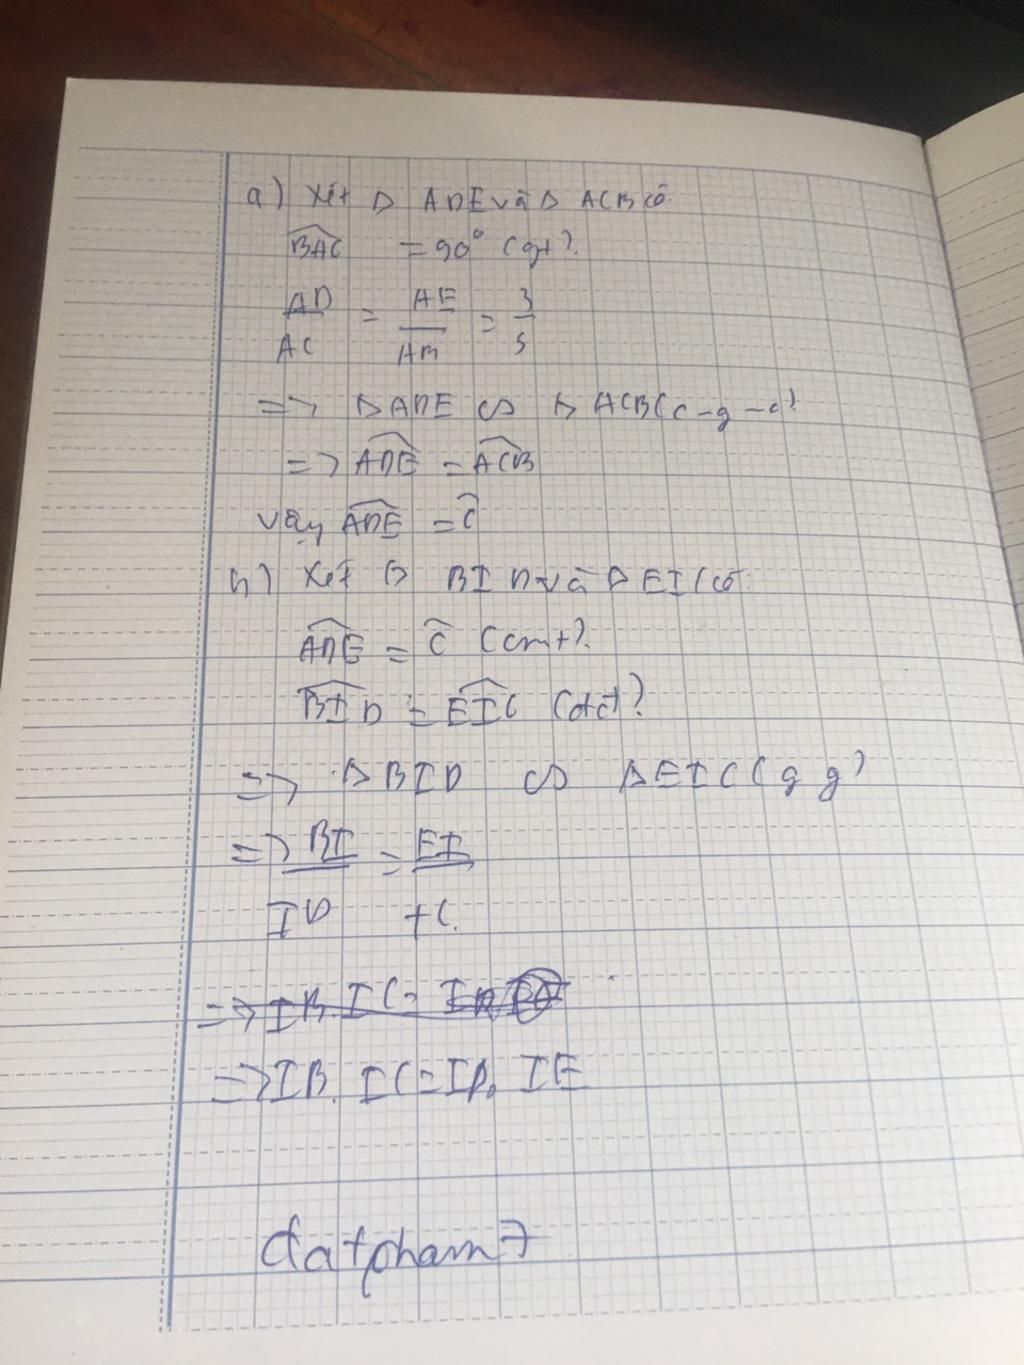 a) Xét Δ ADE và Δ ACB có:
BAC = 90° (gt).
AD/AC = AE/AB = 3/5
=> Δ ADE ∽ Δ ACB (c-g-c)
=> ADE = ACB
vậy ADE = C
b) Xét Δ BID và Δ EIC có:
ADE = C (cmt).
BID = EIC (đđ)
=> Δ BID ∽ Δ EIC (g g)
=> BI/ID = EI/IC.
=> IB. IC = ID
=> IB. IC = ID. IE
datpham7